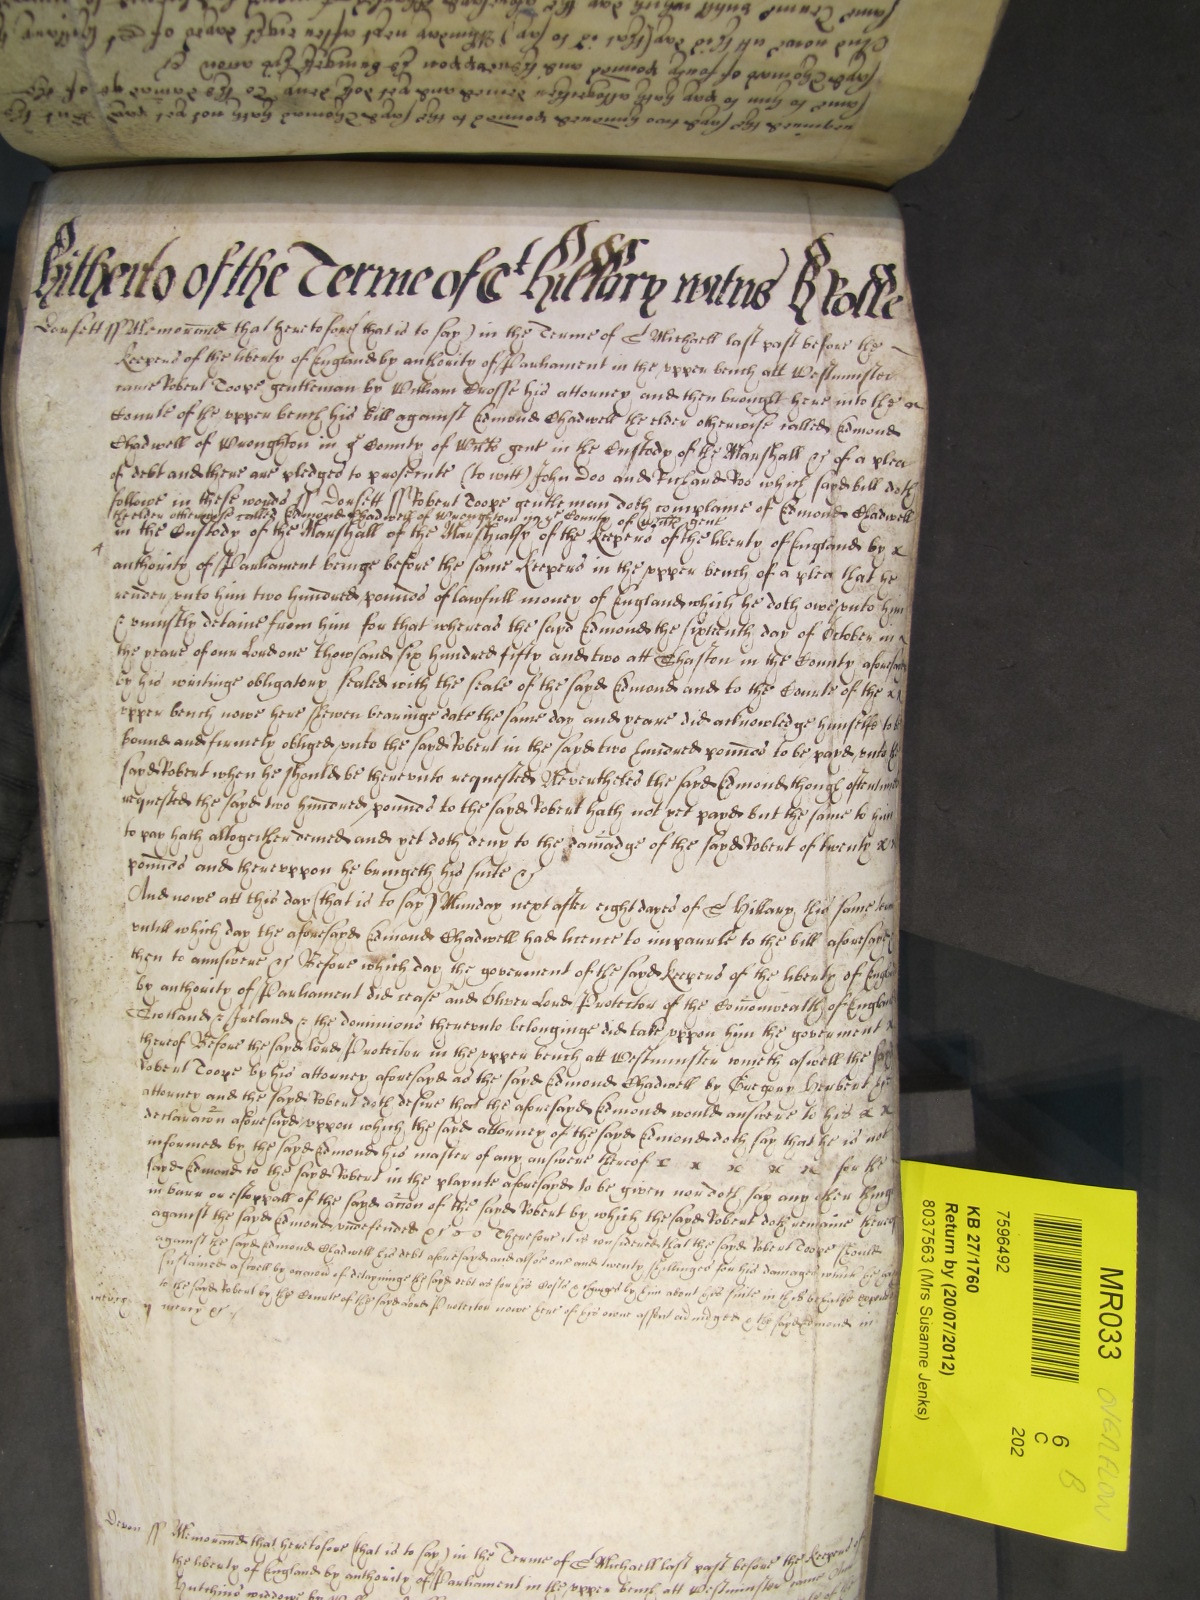 required the sayd two hundred pounds to the sayd Thomas hath not yet payd But the
same to him to pay hath altogether denied and yet doth deny To the damage of the
sayd Thomas of fourty pounds and thereuppon he bringeth his suite &c
And nowe att this day (that is to say) Munday next after eight dayes of St Hillary
same Terme untill which day the aforesayd
Hitherto of the Terme of St Hillary witnes H Rolle
Dorsett ss Memorand that heretofore (that is to say) in the Terme of St Michaell last past before the
Keepers of the liberty of England by authority of Parliament in the upper bench att Westminster
came Robert Toope gentleman by William Crosse his attorney and then brought here into the
Courte of the upper bench his bill against Edmond Chadwell the elder otherwise called Edmond
Chadwell of Wroughton in ye County of Wilts gent in the Custody of the Marshall &c of a plea
of debt and there are pledges to prosecute (to witt) John Doo and Richard Roo which sayd bill doth
followe in these words ss Dorsett ss Robert Toope gentleman doth complaine of Edmond Chadwell
the elder otherwise called Edmond Chadwell of Wroughton in ye County of Wilts gent
in the Custody of the Marshall of the Marshalsy of the Keepers of the liberty of England by x
authority of Parliament beinge before the same Keepers in the upper bench of a plea that he
render unto him two hundred pounds of lawfull money of England which he doth owe unto him
& uniustly detaine from him for that whereas the sayd Edmond the sixteenth day of October in
the yeare of our Lord one thowsand six hundred fifty and two att Shaston in the County aforesayd
by his writinge obligatory sealed with the seale of the sayd Edmond and to the Courte of the x x
upper bench nowe here shewen bearinge date the same day and yeare did acknowledge himselfe to be
bound and firmely obliged unto the sayd Robert in the sayd two hundred pounds to be payd unto the
sayd Robert when he should be thereunto requested Nevertheles the sayd Edmond though oftentimes
requested the sayd two hundred pounds to the sayd Robert hath not yet payd but the same to him
to pay hath altogeither denied and yet doth deny to the damadge of the sayd Robert of twenty x x
pounds and thereuppon he bringeth his suite &c
And nowe att this day (that is to say) Munday next after eight dayes of St Hillary this same terme
untill which day the aforesayd Edmond Chadwell had licence to imparle to the bill aforesayd
then to annswere &c Before which day the goverment of the sayd Keepers of the liberty of England
by authority of Parliament did cease and Oliver Lord Protector of the Comonwealth of England
Scotland & Ireland & the dominions thereunto belonginge did take uppon him the goverment x
thereof Before the sayd lord Protector in the upper bench att Westminster cometh aswell the sayd
Robert Toope by his attorney aforesayd as the sayd Edmond Chadwell by Gregory Herbert his
attorney and the sayd Robert doth desire that the aforesayd Edmond would answere to his x x
declaracon aforesayd uppon which the sayd attorney of the sayd Edmond doth say that he is not
informed by the sayd Edmond his master of any answere thereof x x x x x for the
sayd Edmond to the sayd Robert in the playnte aforesayd to be given nor doth say any other thing
in barr or estoppall of the sayd accon of the sayd Robert by which the sayd Robert doth remaine thereof
against the sayd Edmond undefended &c Therefore it is considered that the sayd Robert Toope should
against the sayd Edmond Chadwell his debt aforesayd and allsoe one and twenty shillinges for his damages which he
sustained aswell by occasion of detayninge the sayd debt as for his Costs & charges by him about his suite in this behalfe
to the sayd Robert by the Courte of the sayd Lord Protector nowe here of his owne assent adiudged & the sayd Edmond in
mercy &c
Devon ss Memorand that heretofore (that is to say) in the Terme of St Michaell last past before the Keepers of
the liberty of England by authority of Parliament in the upper bench att Westminster came
Hutchins widdowe by
MR033
7596492
KB 27/1760
Return by (20/07/2012)
8037563 (Mrs Susanne Jenks)
6
C
202
OVERFLOW
B